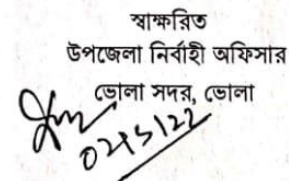 স্বাক্ষরিত
উপজেলা নির্বাহী অফিসার
ভোলা সদর, ভোলা